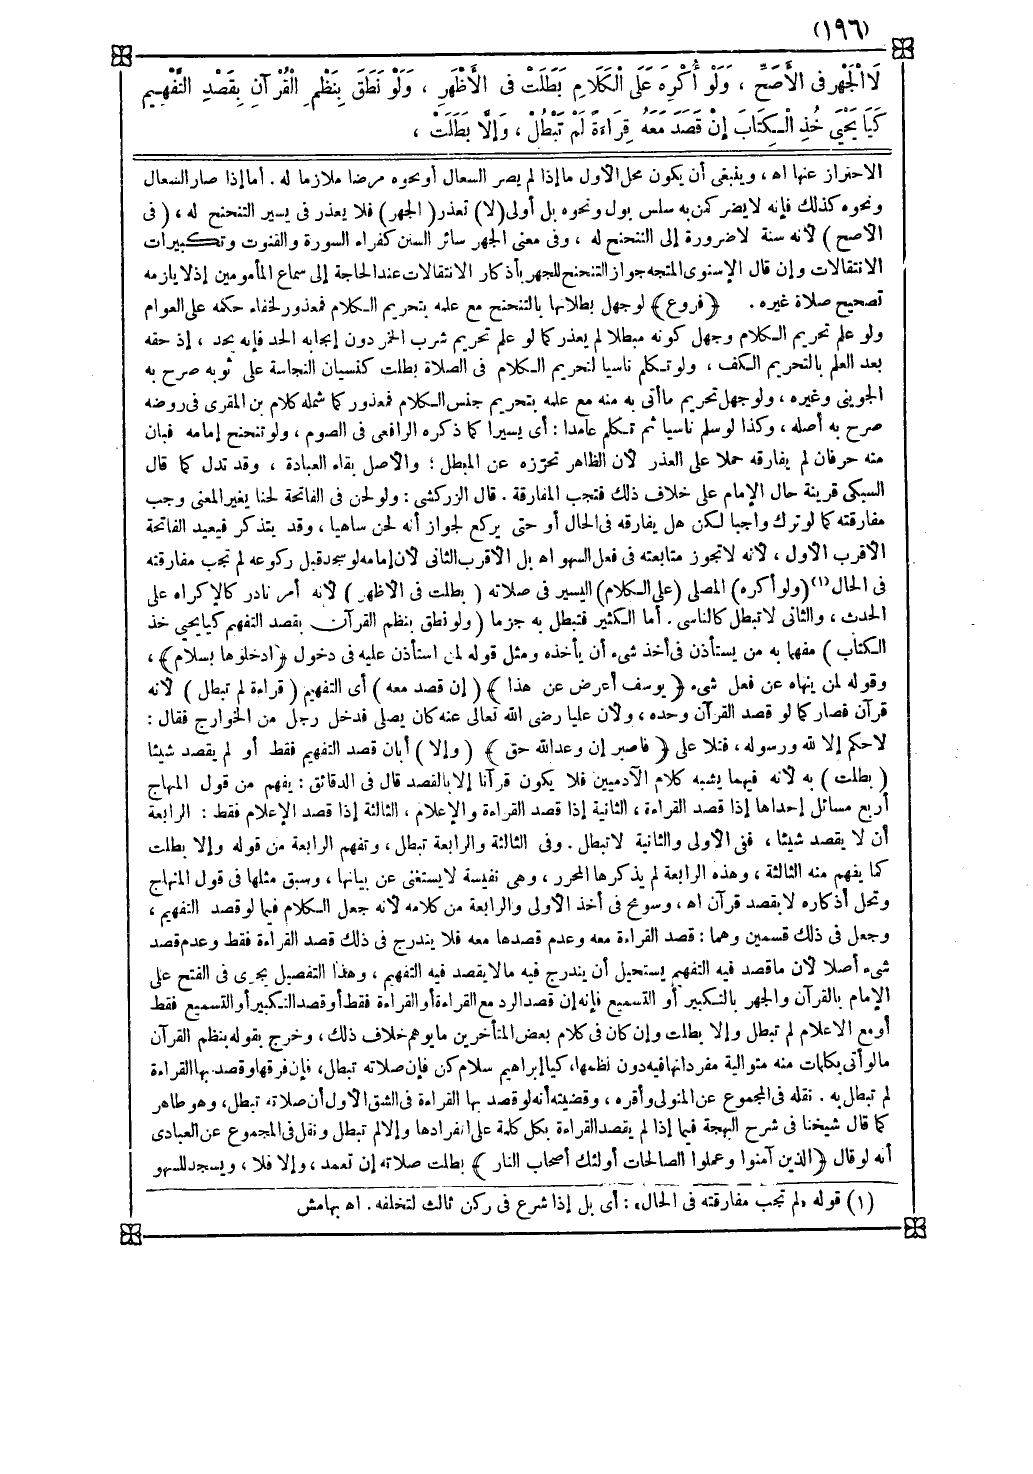 (١٩٦)
لَا الْجَهْرِ فِى الْأَصَحِّ ، وَلَوْ أُكْرِهَ عَلَى الْكَلَامِ بَطَلَتْ فِى الْأَظْهَرِ ، وَلَوْ نَطَقَ بِنَظْمِ الْقُرْآنِ بِقَصْدِ التَّفْهِيمِ
كَيَا يَحْيَى خُذِ الْكِتَابَ إِنْ قَصَدَ مَعَهُ قِرَاءَةً لَمْ تَبْطُلْ ، وَإِلَّا بَطَلَتْ ،
الاحتراز عنها اه ، وينبغى أن يكون محل الأول ما إذا لم يصر السعال أو نحوه مرضا ملازما له . أما إذا صار السعال
ونحوه كذلك فإنه لا يضر كمن به سلس بول ونحوه بل أولى (لا) تعذر (الجهر) فلا يعذر فى يسير التنحنح له ، (فى
الأصح) لأنه سنة لا ضرورة إلى التنحنح له ، وفى معنى الجهر سائر السنن كقراءة السورة والقنوت وتكبيرات
الانتقالات وإن قال الإسنوى المتجه جواز التنحنح للجهر بأذكار الانتقالات عند الحاجة إلى سماع المأمومين إذ لا يلزمه
تصحيح صلاة غيره . ﴿فروع﴾ لو جهل بطلانها بالتنحنح مع علمه بتحريم الكلام فمعذور لخفاء حكمه على العوام
ولو علم تحريم الكلام وجهل كونه مبطلا لم يعذر كما لو علم تحريم شرب الخمر دون إيجابه الحد فإنه يحد ، إذ حقه
بعد العلم بالتحريم الكف ، ولو تكلم ناسيا لتحريم الكلام فى الصلاة بطلت كنسيان النجاسة على ثوبه صرح به
الجوينى وغيره ، ولو جهل تحريم ما أتى به منه مع علمه بتحريم جنس الكلام فمعذور كما شمله كلام بن المقرى فى روضه
صرح به أصله ، وكذا لو سلم ناسيا ثم تكلم عامدا : أى يسيرا كما ذكره الرافعى فى الصوم ، ولو تنحنح إمامه فبان
منه حرفان لم يفارقه حملا على العذر لأن الظاهر تحرّزه عن المبطل ؛ والأصل بقاء العبادة ، وقد تدل كما قال
السبكى قرينة حال الإمام على خلاف ذلك فتجب المفارقة . قال الزركشى : ولو لحن فى الفاتحة لحنا يغير المعنى وجب
مفارقته كما لو ترك واجبا لكن هل يفارقه فى الحال أو حتى يركع لجواز أنه لحن ساهيا ، وقد يتذكر فيعيد الفاتحة
الأقرب الأول ، لأنه لا تجوز متابعته فى فعل السهو اه بل الأقرب الثانى لأن إمامه لو سجد قبل ركوعه لم تجب مفارقته
فى الحال(١) (ولو أكره) المصلى (على الكلام) اليسير فى صلاته (بطلت فى الأظهر) لأنه أمر نادر كالإكراه على
الحدث ، والثانى لا تبطل كالناسى . أما الكثير فتبطل به جزما (ولو نطق بنظم القرآن بقصد التفهيم كيا يحيى خذ
الكتاب) مفهما به من يستأذن فى أخذ شىء أن يأخذه ومثل قوله لمن استأذن عليه فى دخول ﴿ادخلوها بسلام﴾ ،
وقوله لمن ينهاه عن فعل شىء ﴿يوسف أعرض عن هذا﴾ (إن قصد معه) أى التفهيم (قراءة لم تبطل) لأنه
قرآن فصار كما لو قصد القرآن وحده ، ولأن عليا رضى الله تعالى عنه كان يصلى فدخل رجل من الخوارج فقال :
لا حكم إلا لله ورسوله ، فتلا على ﴿فاصبر إن وعد الله حق﴾ (وإلا) أبان قصد التفهيم فقط أو لم يقصد شيئا
(بطلت) به لأنه فيهما يشبه كلام الآدميين فلا يكون قرآنا إلا بالقصد قال فى الدقائق : يفهم من قول المنهاج
أربع مسائل إحداها إذا قصد القراءة ، الثانية إذا قصد القراءة والإعلام ، الثالثة إذا قصد الإعلام فقط : الرابعة
أن لا يقصد شيئا ، ففى الأولى والثانية لا تبطل . وفى الثالثة والرابعة تبطل ، وتفهم الرابعة من قوله وإلا بطلت
كما يفهم منه الثالثة ، وهذه الرابعة لم يذكرها المحرر ، وهى نفيسة لا يستغنى عن بيانها ، وسبق مثلها فى قول المنهاج
وتحل أذكاره لا بقصد قرآن اه ، وسومح فى أخذ الأولى والرابعة من كلامه لأنه جعل الكلام فيما لو قصد التفهيم ،
وجعل فى ذلك قسمين وهما : قصد القراءة معه وعدم قصدها معه فلا يندرج فى ذلك قصد القراءة فقط وعدم قصد
شىء أصلا لأن ما قصد فيه التفهيم يستحيل أن يندرج فيه ما لا يقصد فيه التفهيم ، وهذا التفصيل يجرى فى الفتح على
الإمام بالقرآن والجهر بالتكبير أو التسميع فإنه إن قصد الرد مع القراءة أو القراءة فقط أو قصد التكبير أو التسميع فقط
أو مع الإعلام لم تبطل وإلا بطلت وإن كان فى كلام بعض المتأخرين ما يوهم خلاف ذلك ، وخرج بقوله بنظم القرآن
ما لو أتى بكلمات منه متوالية مفرداتها فيه دون نظمها، كيا إبراهيم سلام كن فإن صلاته تبطل، فإن فرقها وقصد بها القراءة
لم تبطل به . نقله فى المجموع عن المتولى وأقره ، وقضيته أنه لو قصد بها القراءة فى الشق الأول أن صلاته تبطل، وهو ظاهر
كما قال شيخنا فى شرح البهجة فيما إذا لم يقصد القراءة بكل كلمة على انفرادها وإلا لم تبطل ونقل فى المجموع عن العبادى
أنه لو قال ﴿الذين آمنوا وعملوا الصالحات أولئك أصحاب النار﴾ بطلت صلاته إن تعمد ، وإلا فلا ، ويسجد للسهو
(١) قوله «لم تجب مفارقته فى الحال» : أى بل إذا شرع فى ركن ثالث لتخلفه . اه بهامش